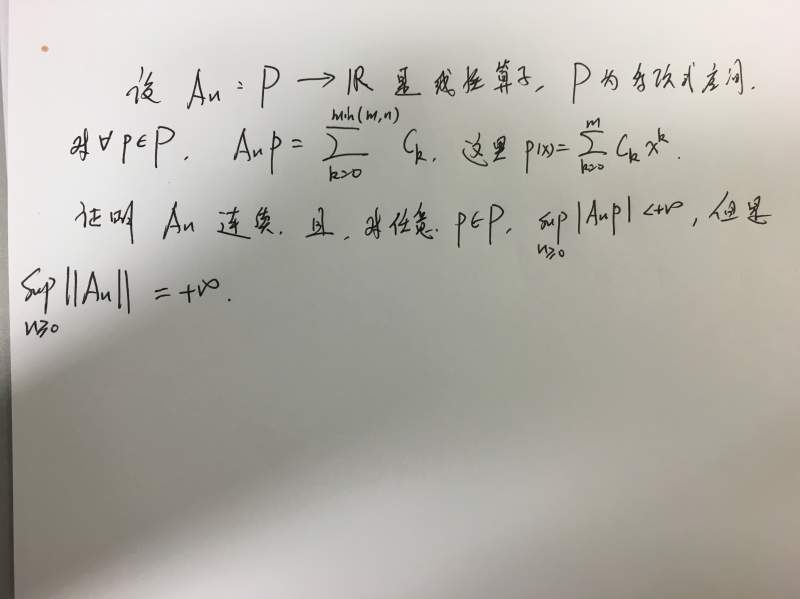 设 Aₙ : P → ℝ 是线性算子, P 为多项式空间.
对 ∀ p∈P, Aₙp = ∑_{k=0}^{min(m,n)} Cₖ, 这里 p(x)= ∑_{k=0}^{m} Cₖ xᵏ.
证明 Aₙ 连续. 且, 对任意 p∈P, sup_{n≥0} |Aₙp| <+∞, 但是
sup_{n≥0} ||Aₙ|| = +∞.